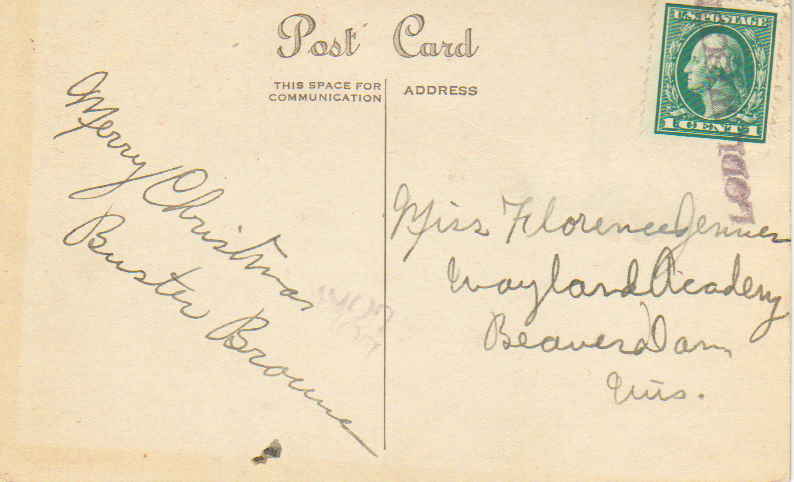 Post Card
THIS SPACE FOR
COMMUNICATION
ADDRESS
U.S. POSTAGE
1 CENT 1
Merry Christmas
Buster Browne
Miss Florence Jenner
Wayland Acadeny
Beaver Dam
Wis.